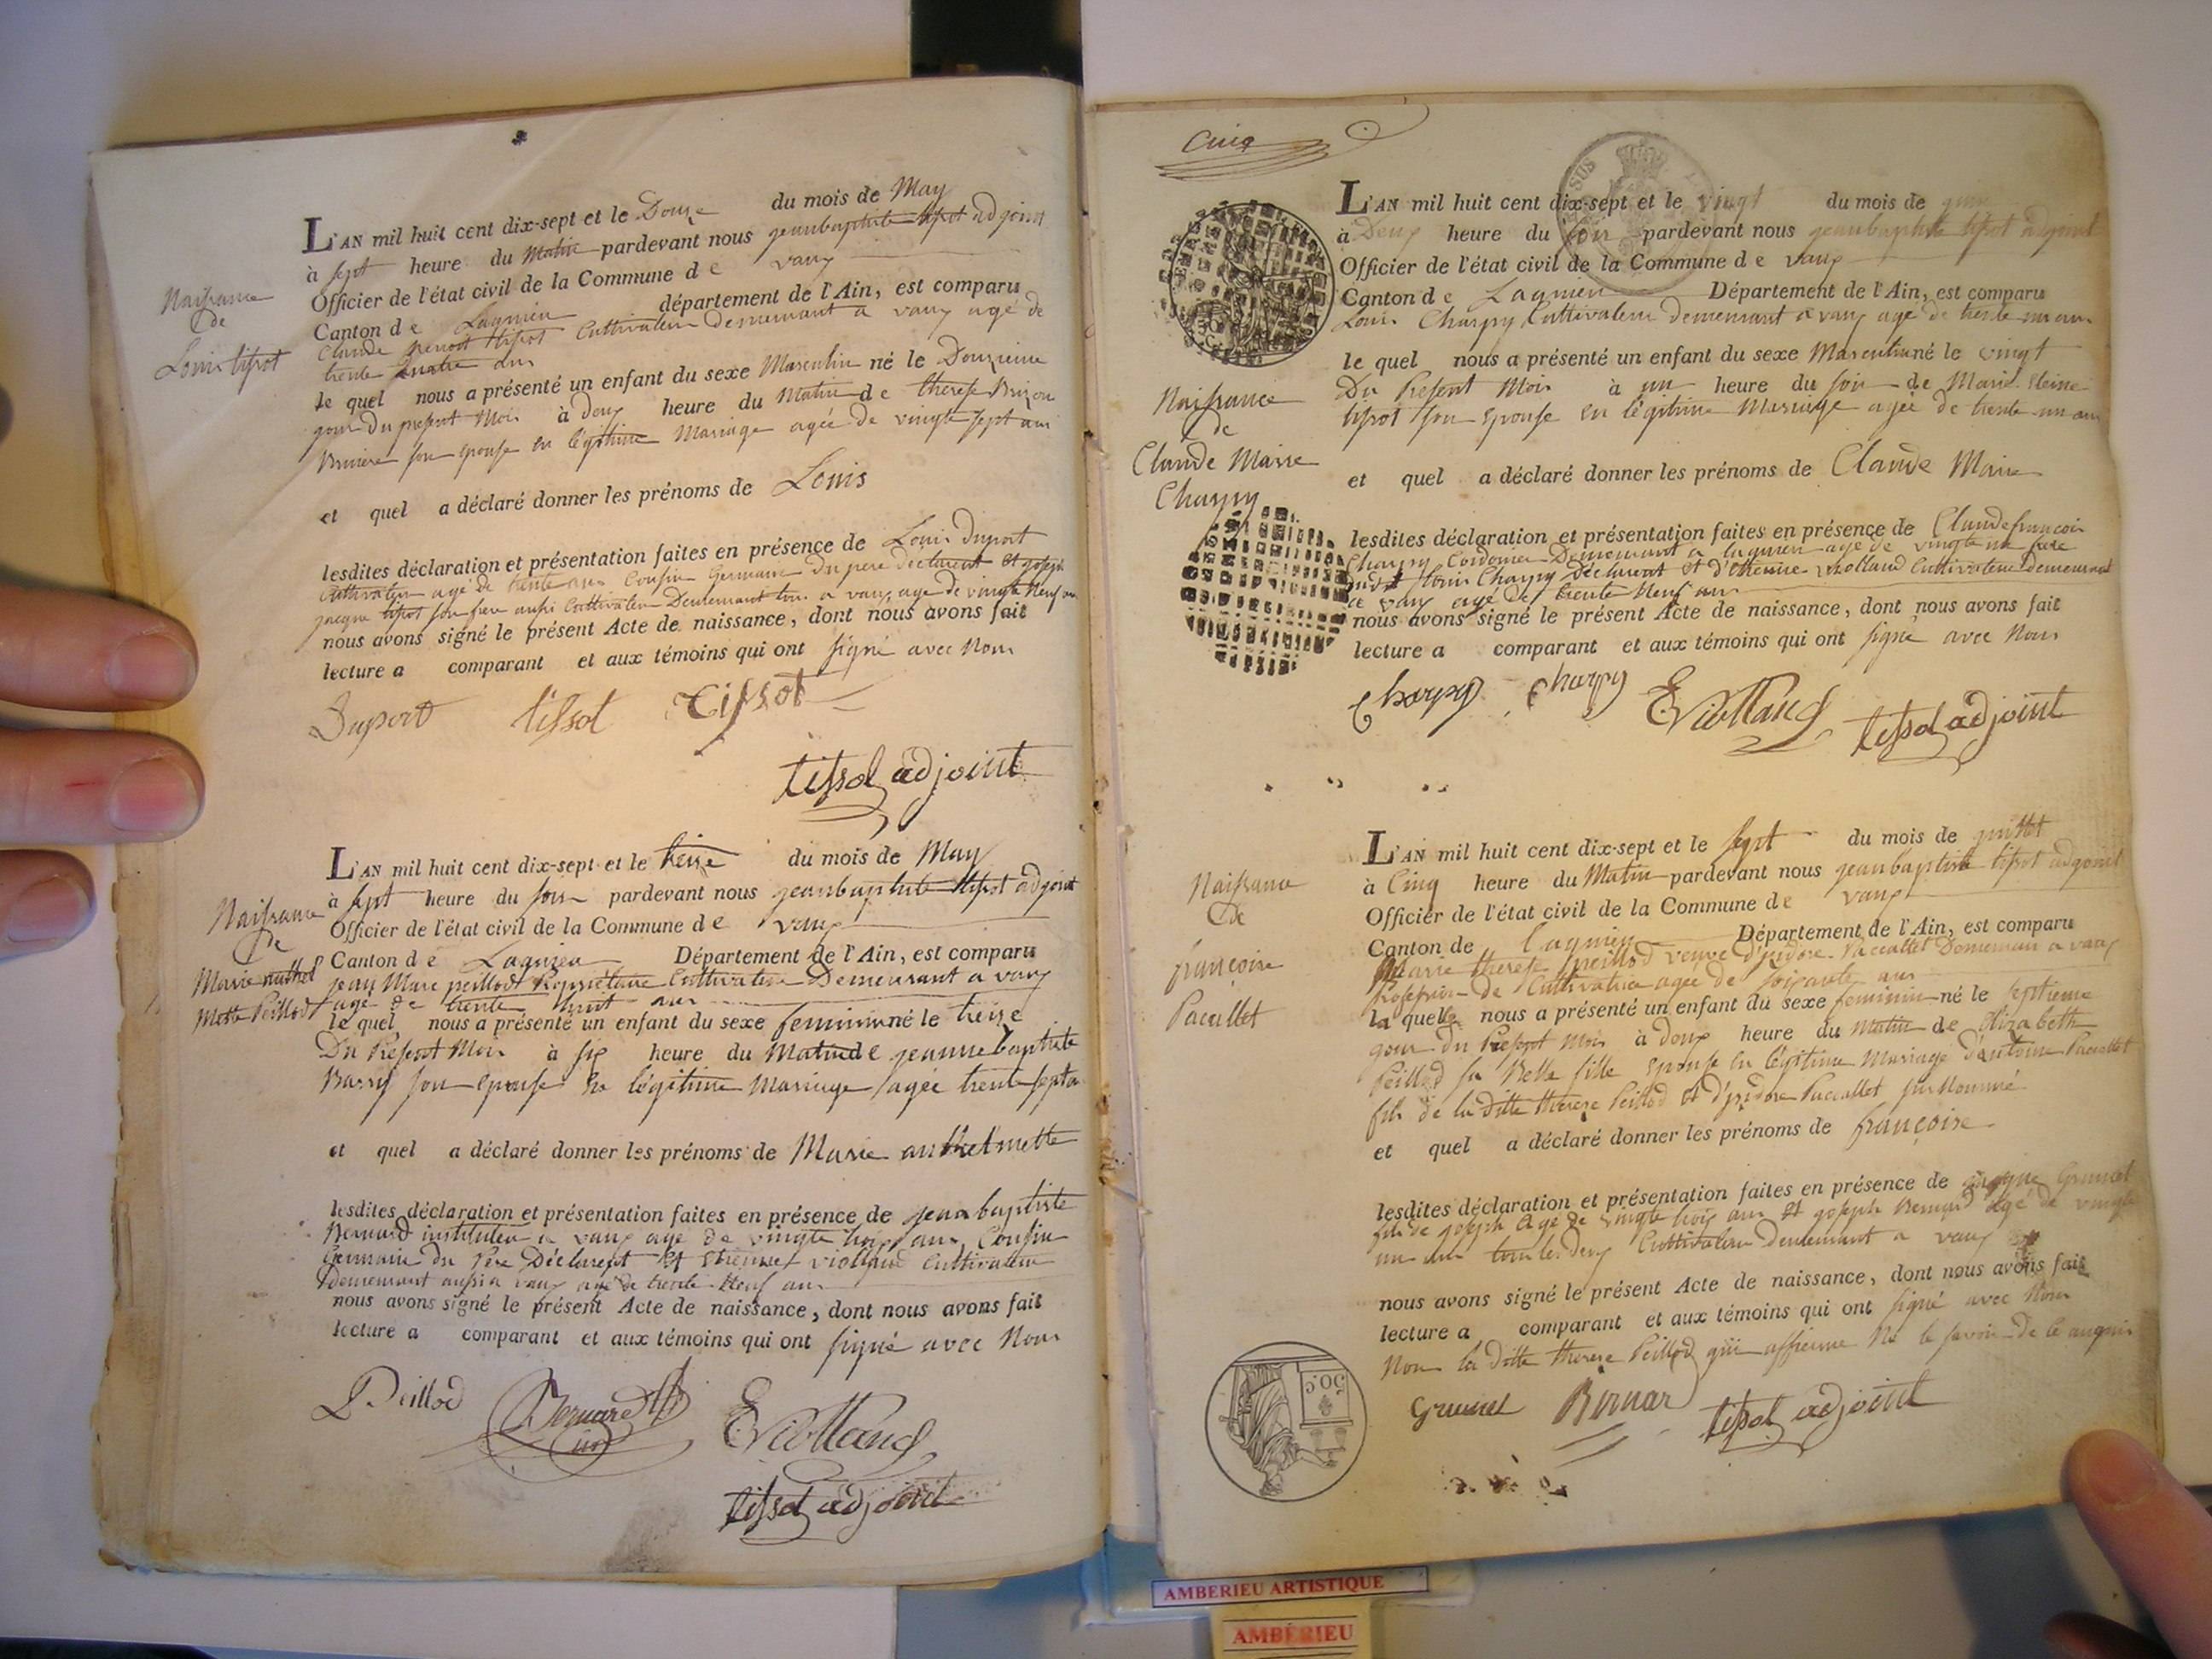 Naissance
de
Louis tissot
L'AN mil huit cent dix-sept et le Douze du mois de May
à sept heure du Matin pardevant nous jeanbaptiste tissot adjoint
Officier de l'état civil de la Commune de vaux
Canton de Lagnieu département de l'Ain, est comparu
Claude Benoit tissot Cultivateur demeurant a vaux agé de
trente quatre ans
le quel nous a présenté un enfant du sexe Masculin né le Douzieme
jour du present Mois à deux heure du Matin de therese Brizon
Bruniere son epouse en légitime Mariage agée de vingt sept ans
et quel a déclaré donner les prénoms de Louis
lesdites déclaration et présentation faites en présence de Louis Duport
Cultivateur agé de trente ans Cousin Germain du pere declarant et joseph
jacque tissot son frere aussi Cultivateur Demeurant tous a vaux, age de vingte Neuf ans
nous avons signé le présent Acte de naissance, dont nous avons fait
lecture a comparant et aux témoins qui ont signé avec Nous
Duport tissot Tissot
tissot adjoint
Naissance
De
Marie anthel
mette Peillod
L'AN mil huit cent dix-sept et le treise du mois de May
à sept heure du soir pardevant nous jeanbaptiste tissot adjoint
Officier de l'état civil de la Commune de vaux
Canton de Lagnieu Département de l'Ain, est comparu
jean Marc peillod Propriétaire Cultivateur Demeurant a vaux
agé de trente huit ans
le quel nous a présenté un enfant du sexe feminin né le treise
Du Present Mois à six heure du Matin de jeanne baptiste
Barry son epouse En légitime Mariage agée trente sept a
et quel a déclaré donner les prénoms de Marie anthelmette
lesdites déclaration et présentation faites en présence de jean baptiste
Bernard instituteur a vaux age de vingte trois ans, Cousin
Germain du Père Déclarent Et Etienne violland Cultivateur
demeurant aussi a vaux agé de trente Neuf ans
nous avons signé le présent Acte de naissance, dont nous avons fait
lecture a comparant et aux témoins qui ont signé avec Nous
Peillod Bernard
E violland
tissot adjoint
Cinq
Naissance
de
Claude Marie
Charpy
L'AN mil huit cent dix-sept et le vingt du mois de juin
à Deux heure du soir pardevant nous jeanbaptiste tissot adjoint
Officier de l'état civil de la Commune de vaux
Canton de Lagnieu Département de l'Ain, est comparu
Louis Charpy Cultivateur demeurant a vaux agé de trente un ans
le quel nous a présenté un enfant du sexe Masculin né le vingt
Du Present Mois à un heure du soir de Marie Reine
tissot son Epouse en légitime Mariage agée de trente un an
et quel a déclaré donner les prénoms de Claude Marie
lesdites déclaration et présentation faites en présence de Claude francois
Charpy Cordonier Demeurant a lagnieu agé de vingte un frere
dudit Louis Charpy Déclarent et d'Etienne violland Cultivateur demeurant
a vaux agé de trente Neuf ans
nous avons signé le présent Acte de naissance, dont nous avons fait
lecture a comparant et aux témoins qui ont signé avec Nous
Charpy Charpy E violland tissot adjoint
Naissance
De
françoise
Paccallet
L'AN mil huit cent dix-sept et le sept du mois de juillet
à Cinq heure du Matin pardevant nous jeanbaptiste tissot adjoint
Officier de l'état civil de la Commune de vaux
Canton de lagnieu Département de l'Ain, est comparu
Marie therese peillod veuve d'isidore Paccallet Demeurant a vaux
Profession de Cultivatrice agée de soixante ans
la quelle nous a présenté un enfant du sexe feminin né le septieme
jour du Present Mois à deux heure du Matin de Elizabeth
Peillod sa Belle fille epouse en légitime Mariage d'antoine Paccallet
fils de la ditte therese Peillod et d'isidore Paccallet surNommé
et quel a déclaré donner les prénoms de françoise
lesdites déclaration et présentation faites en présence de jacque Grumet
fils de joseph Agé de vingte trois ans Et joseph Bernard agé de vingte
un ans tous les deux Cultivateur demeurant a vaux
nous avons signé le présent Acte de naissance, dont nous avons fait
lecture a comparant et aux témoins qui ont signé avec Nous
Non la ditte therese Peillod qui affirme Ne le savoir de le
Grumet Bernar tissot adjoint
50 C.
AMBERIEU ARTISTIQUE
AMBÉRIEU